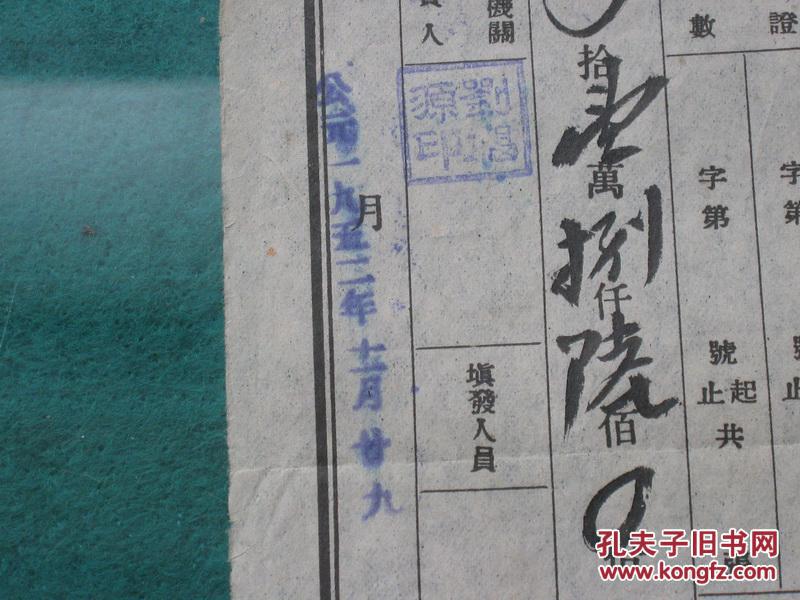 證
數
字第
號
起
止
共
號
字第
號
止
拾 萬 捌仟陸佰0
機關
人
劉昌源印
填發人員
月
公元一九五二年十二月廿九
孔夫子旧书网
www.kongfz.com